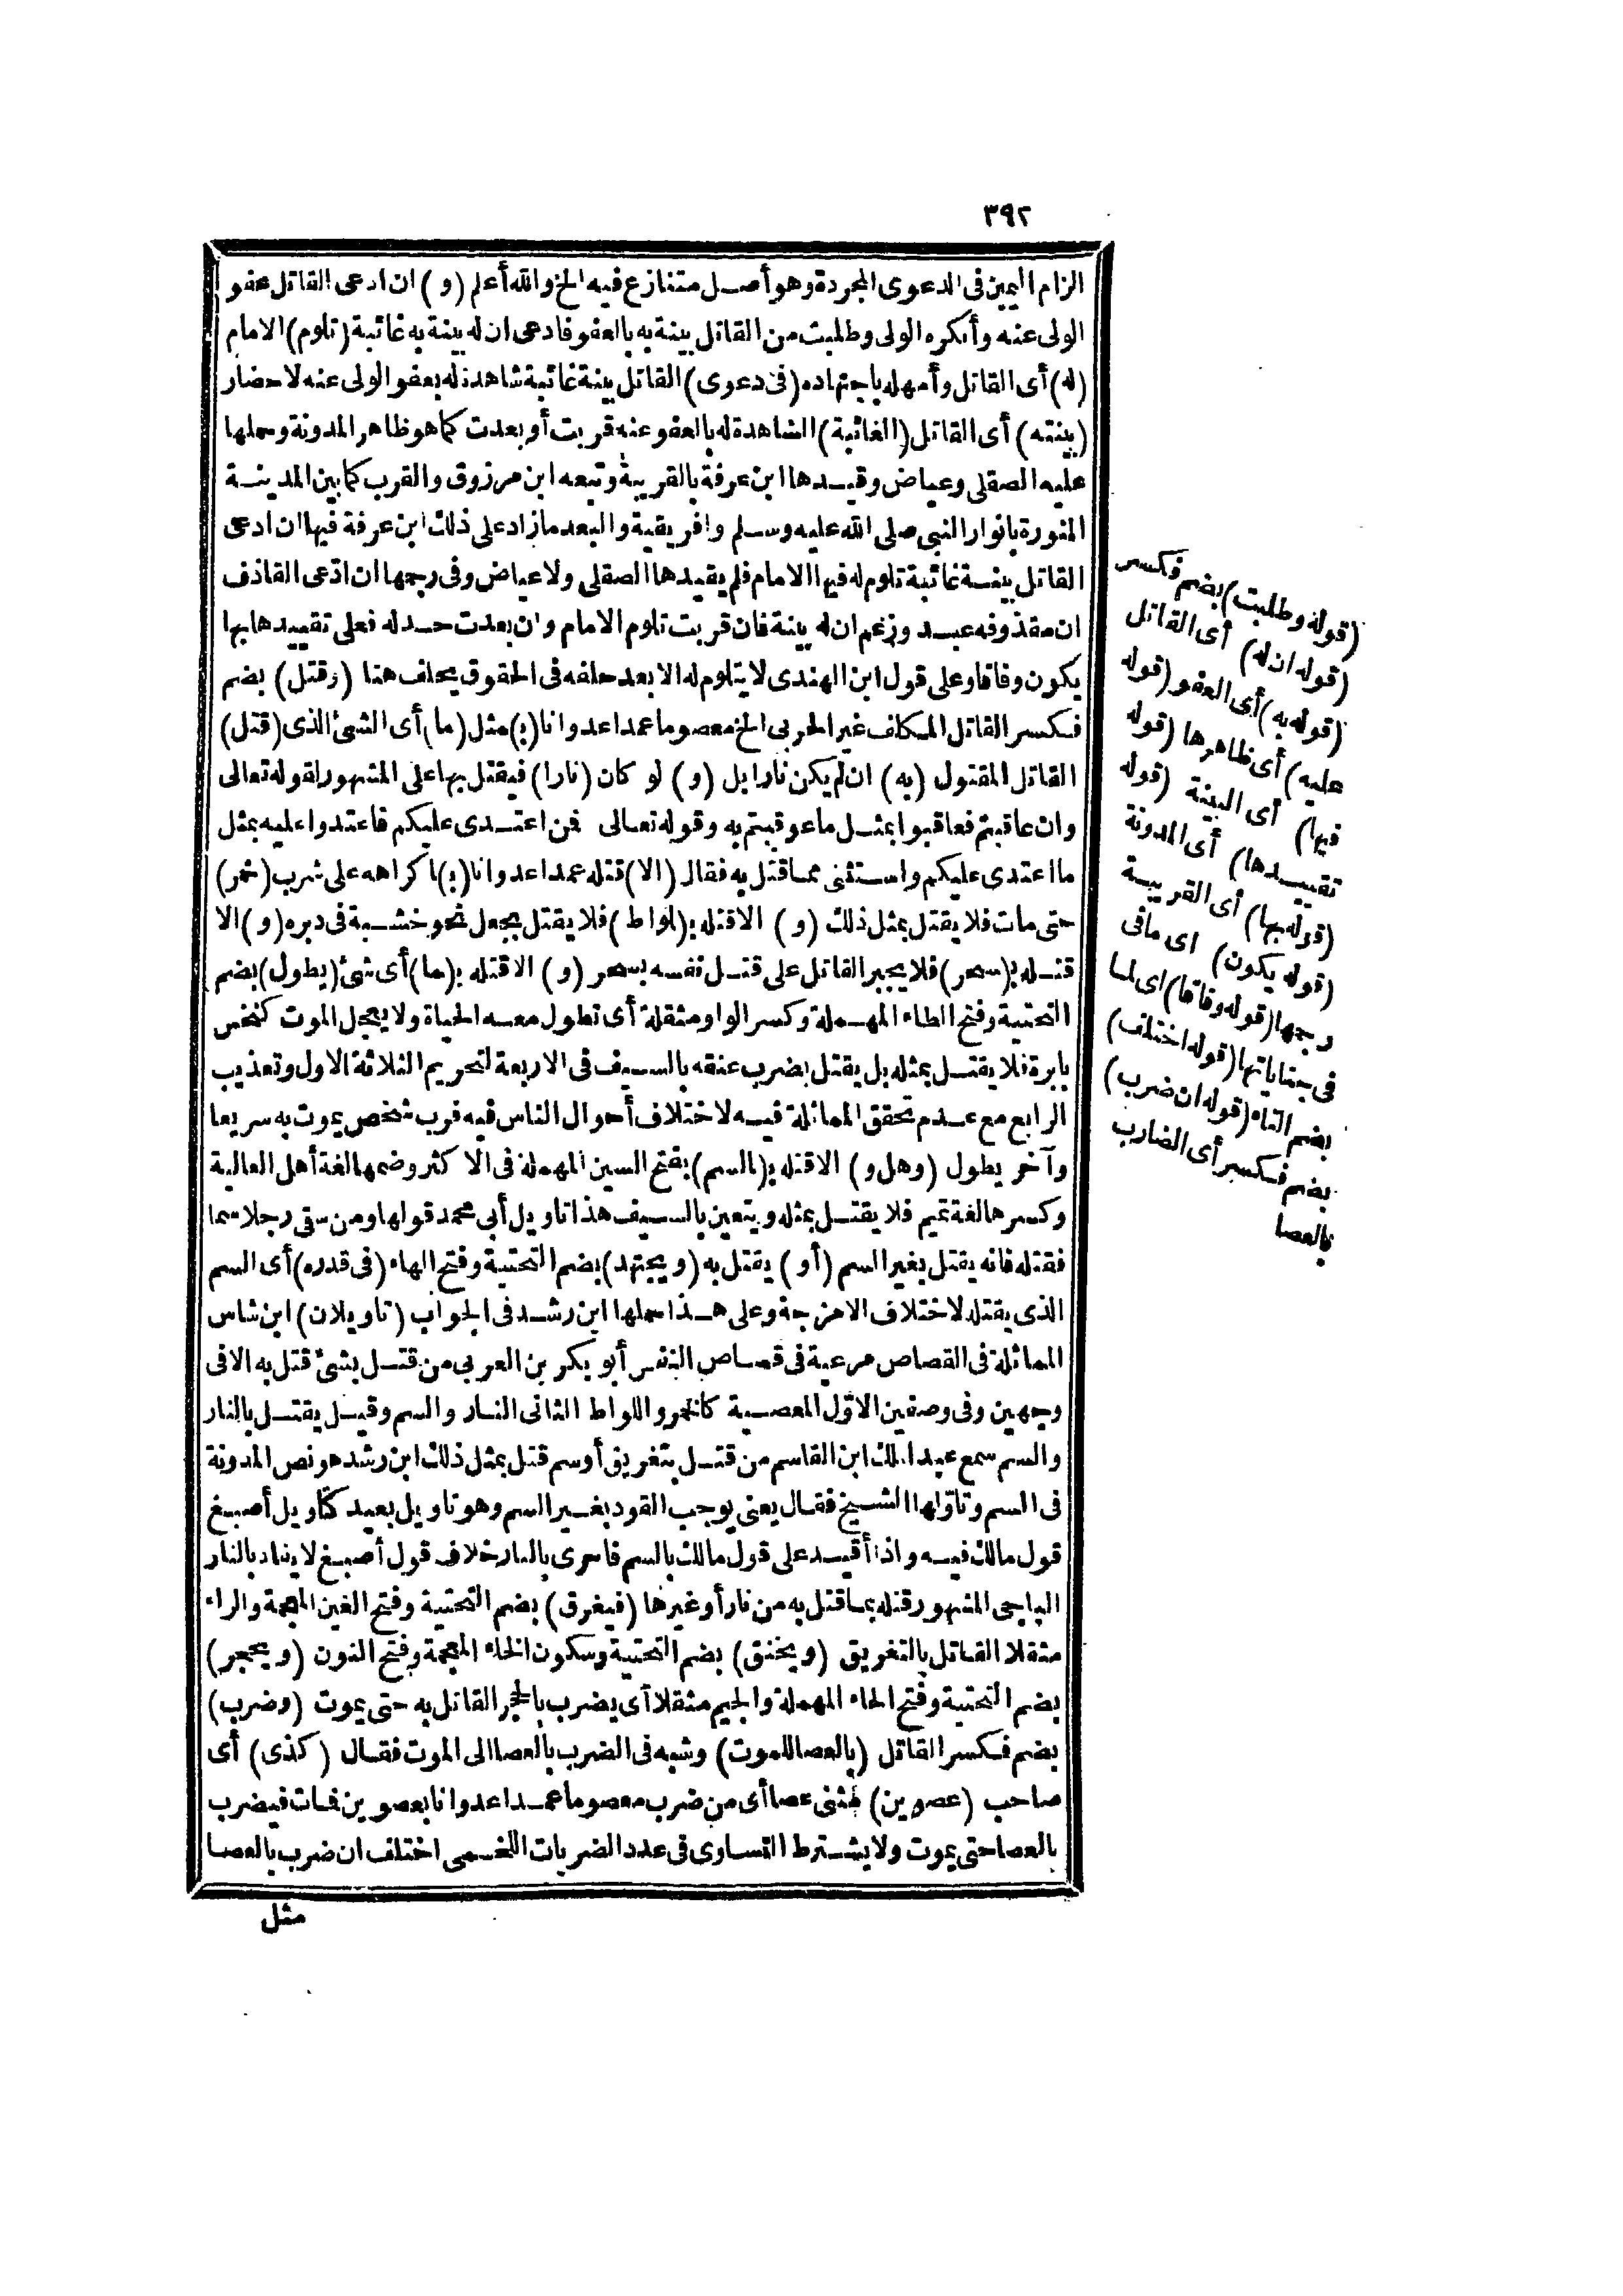 ٣٩٢
الزام اليمين فى الدعوى المجردة وهو أصل متنازع فيه الخ والله أعلم (و) ان ادعى القاتل عفو
الولى عنه وأنكره الولى وطلبت من القاتل بينة به بالعفو فادعى ان له بينة به غائبة (تلوم) الامام
(له) أى القاتل وأمهله باجتهاده (فى دعوى) القاتل بينة غائبة شاهدة له بعفو الولى عنه لاحضار
(بينته) أى القاتل (الغائبة) الشاهدة له بالعفو عنه قربت أو بعدت كما هو ظاهر المدونة وحملها
عليه الصقلى وعياض وقيدها ابن عرفة بالقريبة وتبعه ابن مرزوق والقرب كما بين المدينة
المنورة بانوار النبى صلى الله عليه وسلم وافريقية والبعد ما زاد على ذلك ابن عرفة فيها ان ادعى
القاتل بينة غائبة تلوم له فيها الامام فلم يقيدها الصقلى ولا عياض وفى رجمها ان ادّعى القاذف
ان مقذوفه عبد وزعم ان له بينة فان قربت تلوم الامام وان بعدت حد له فعلى تقييدها بها
يكون وفاقا وعلى قول ابن الهندى لا يتلوم له الا بعد حلفه فى الحقوق يحلف هنا (وقتل) بضم
فكسر القاتل المكلف غير الحربى الخ معصوما عمدا عدوانا (ب) مثل (ما) أى الشئ الذى (قتل)
القاتل المقتول (به) ان لم يكن نارا بل (و) لو كان (نارا) فيقتل بها على المشهور لقوله تعالى
وان عاقبتم فعاقبوا بمثل ما عوقبتم به وقوله تعالى فمن اعتدى عليكم فاعتدوا عليه بمثل
ما اعتدى عليكم واستثنى مما قتل به فقال (الا) قتله عمدا عدوانا (ب) اكراهه على شرب (خمر)
حتى مات فلا يقتل بمثل ذلك (و) الا قتله ب(لواط) فلا يقتل بجعل نحو خشبة فى دبره (و) الا
قتله ب(سحر) فلا يجبر القاتل على قتل نفسه بسحر (و) الا قتله ب(ما) أى شئ (يطول) بضم
التحتية وفتح الطاء المهملة وكسر الواو مثقلة أى تطول معه الحياة ولا يعجل الموت كنخس
بابرة فلا يقتل بمثله بل يقتل بضرب عنقه بالسيف فى الاربعة لتحريم الثلاثة الاول وتعذيب
الرابع مع عدم تحقق المماثلة فيه لاختلاف أحوال الناس فيه فرب شخص يموت به سريعا
وآخر يطول (وهل و) الا قتله ب(السم) بفتح السين المهملة فى الاكثر وضمها لغة أهل العالية
وكسرها لغة تميم فلا يقتل بمثله ويتعين بالسيف هذا تاويل أبى محمد قولها ومن سقى رجلا سما
فقتله فانه يقتل بغير السم (أو) يقتل به (ويجتهد) بضم التحتية وفتح الهاء (فى قدره) أى السم
الذى يقتله لاختلاف الامزجة وعلى هذا حملها ابن رشد فى الجواب (تاويلان) ابن شاس
المماثلة فى القصاص مرعية فى قصاص النفس أبو بكر بن العربى من قتل بشئ قتل به الا فى
وجهين وفى وصفين الاوّل المعصية كالخمر واللواط الثانى النار والسم وقيل يقتل بالنار
والسم سمع عبد الملك ابن القاسم من قتل بتغريق أو سم قتل بمثل ذلك ابن رشد هو نص المدونة
فى السم وتاوّلها الشيخ فقال يعنى يوجب القود بغير السم وهو تاويل بعيد كتاويل أصبغ
قول مالك فيه واذا أقيد على قول مالك بالسم فاحرى بالنار خلاف قول أصبغ لا يقاد بالنار
الباجى المشهور قتله بما قتل به من نار أو غيرها (فيغرق) بضم التحتية وفتح الغين المعجمة والراء
مثقلا القاتل بالتغريق (ويخنق) بضم التحتية وسكون الخاء المعجمة وفتح النون (ويحجر)
بضم التحتية وفتح الحاء المهملة والجيم مثقلا أى يضرب بالحجر القاتل به حتى يموت (وضرب)
بضم فكسر القاتل (بالعصا للموت) وشبه فى الضرب بالعصا الى الموت فقال (كذى) أى
صاحب (عصوين) مثنى عصا أى من ضرب معصوما عمدا عدوانا بعصوين فمات فيضرب
بالعصا حتى يموت ولا يشترط التساوى فى عدد الضربات اللخمى اختلف ان ضرب بالعصا
مثل
(قوله وطلبت) بضم فكسر
(قوله ان له) أى القاتل
(قوله به) أى العفو (قوله
عليه) أى ظاهرها (قوله
فيها) أى البينة (قوله
تقييدها) أى المدونة
(قوله بها) أى القريبة
(قوله يكون) اى ما فى
رجمها (قوله وفاقا) اى لما
فى جناياتها (قوله اختلف)
بضم التاء (قوله ان ضرب)
بضم فكسر أى الضارب
بالعصا